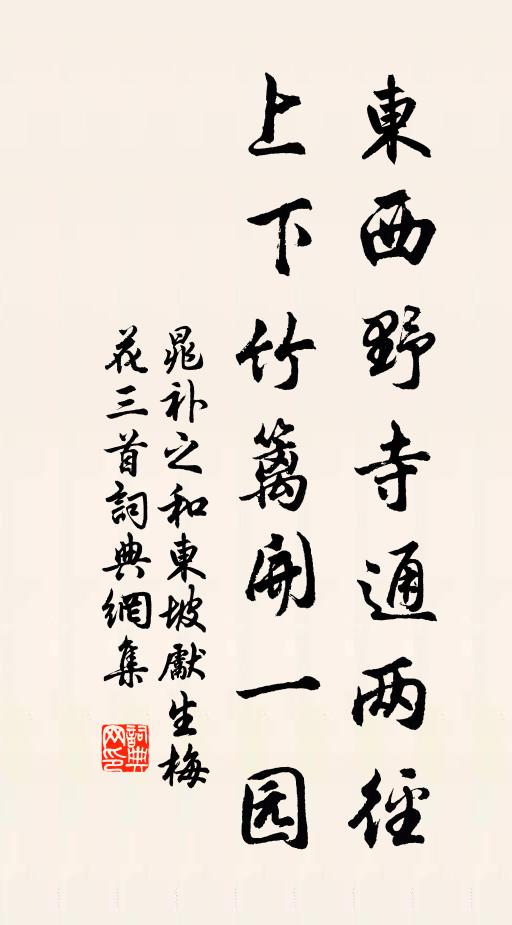 東西野寺通两徑
上下竹篱開一园
晁补之和東坡獻生梅
花三首詞典網集
詞典
网印